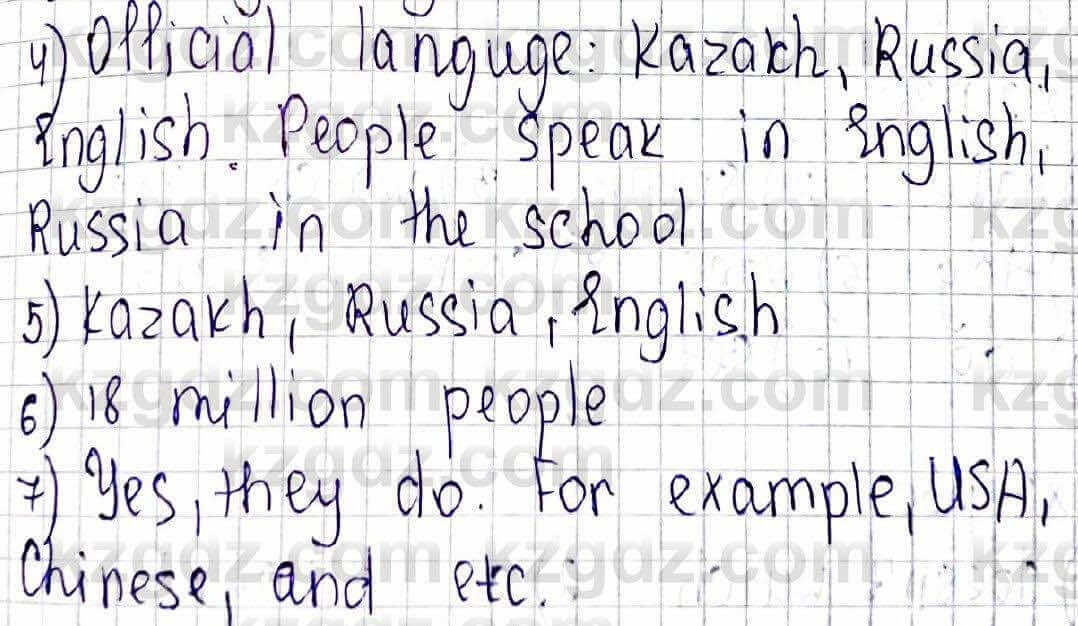 4) Official languge: Kazakh, Russia,
English. People speak in English,
Russia in the school
5) Kazakh, Russia, English
6) 18 million people
7) Yes, they do. For example, USA,
Chinese, and etc.